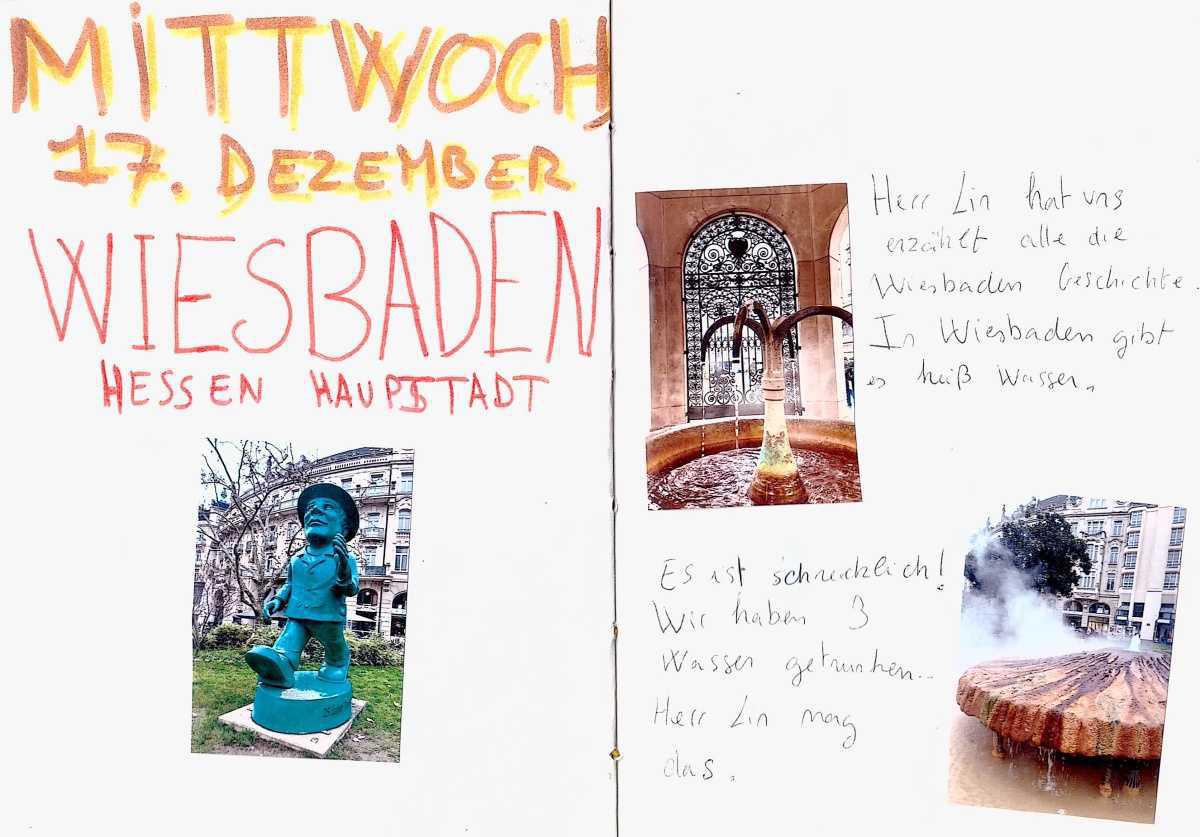 MITTWOCH
17. DEZEMBER
WIESBADEN
HESSEN HAUPSTADT
Herr Lin hat uns
erzählt alle die
Wiesbaden Geschichte.
In Wiesbaden gibt
es heiß Wasser.
Es ist schrecklich!
Wir haben 3
Wasser getrunken...
Herr Lin mag
das.